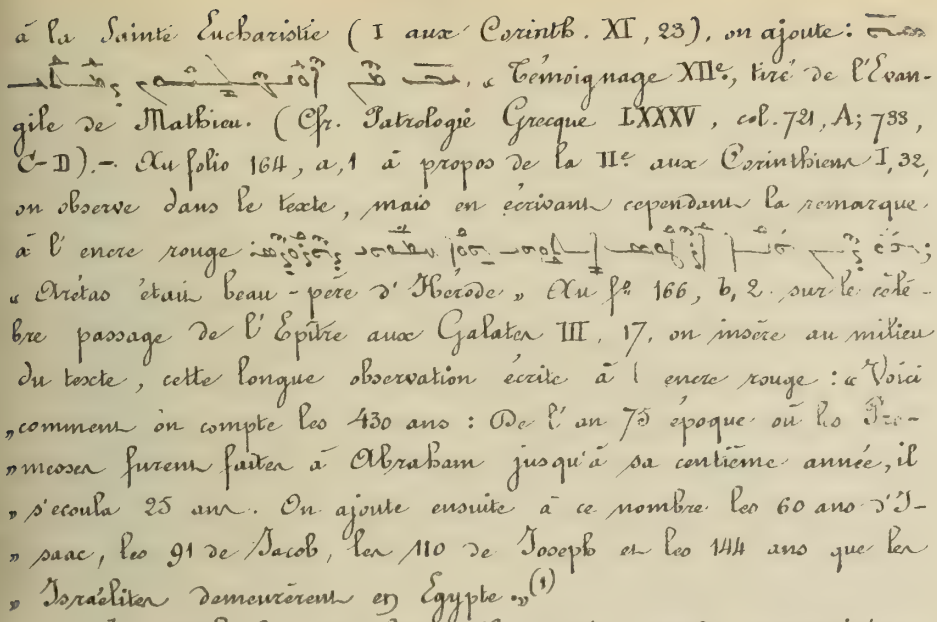 à la Sainte Eucharistie ( I aux Corinth. XI, 23), on ajoute :
« Témoignage XIIe, tiré de l'Evan-
gile de Mathieu. ( Cfr. Patrologie Grecque LXXXV, col. 721, A; 733,
C-D ). - Au folio 164, a, 1 à propos de la IIe aux Corinthiens I, 32,
on observe dans le texte, mais en écrivant cependant la remarque
à l'encre rouge :
« Arétas était beau-père d'Hérode » Au fo 166, b, 2. sur le célè-
bre passage de l'Epître aux Galates III, 17. on insère au milieu
du texte, cette longue observation écrite à l encre rouge : « Voici
„comment on compte les 430 ans : De l'an 75 époque où les Pro-
„messes furent faites à Abraham jusqu'à sa centième année, il
„ s'ecoula 25 ans. On ajoute ensuite à ce nombre les 60 ans d'I-
„ saac, les 91 de Jacob, les 110 de Joseph et les 144 ans que les
„ Israélites demeurèrent en Egypte.„ (1)